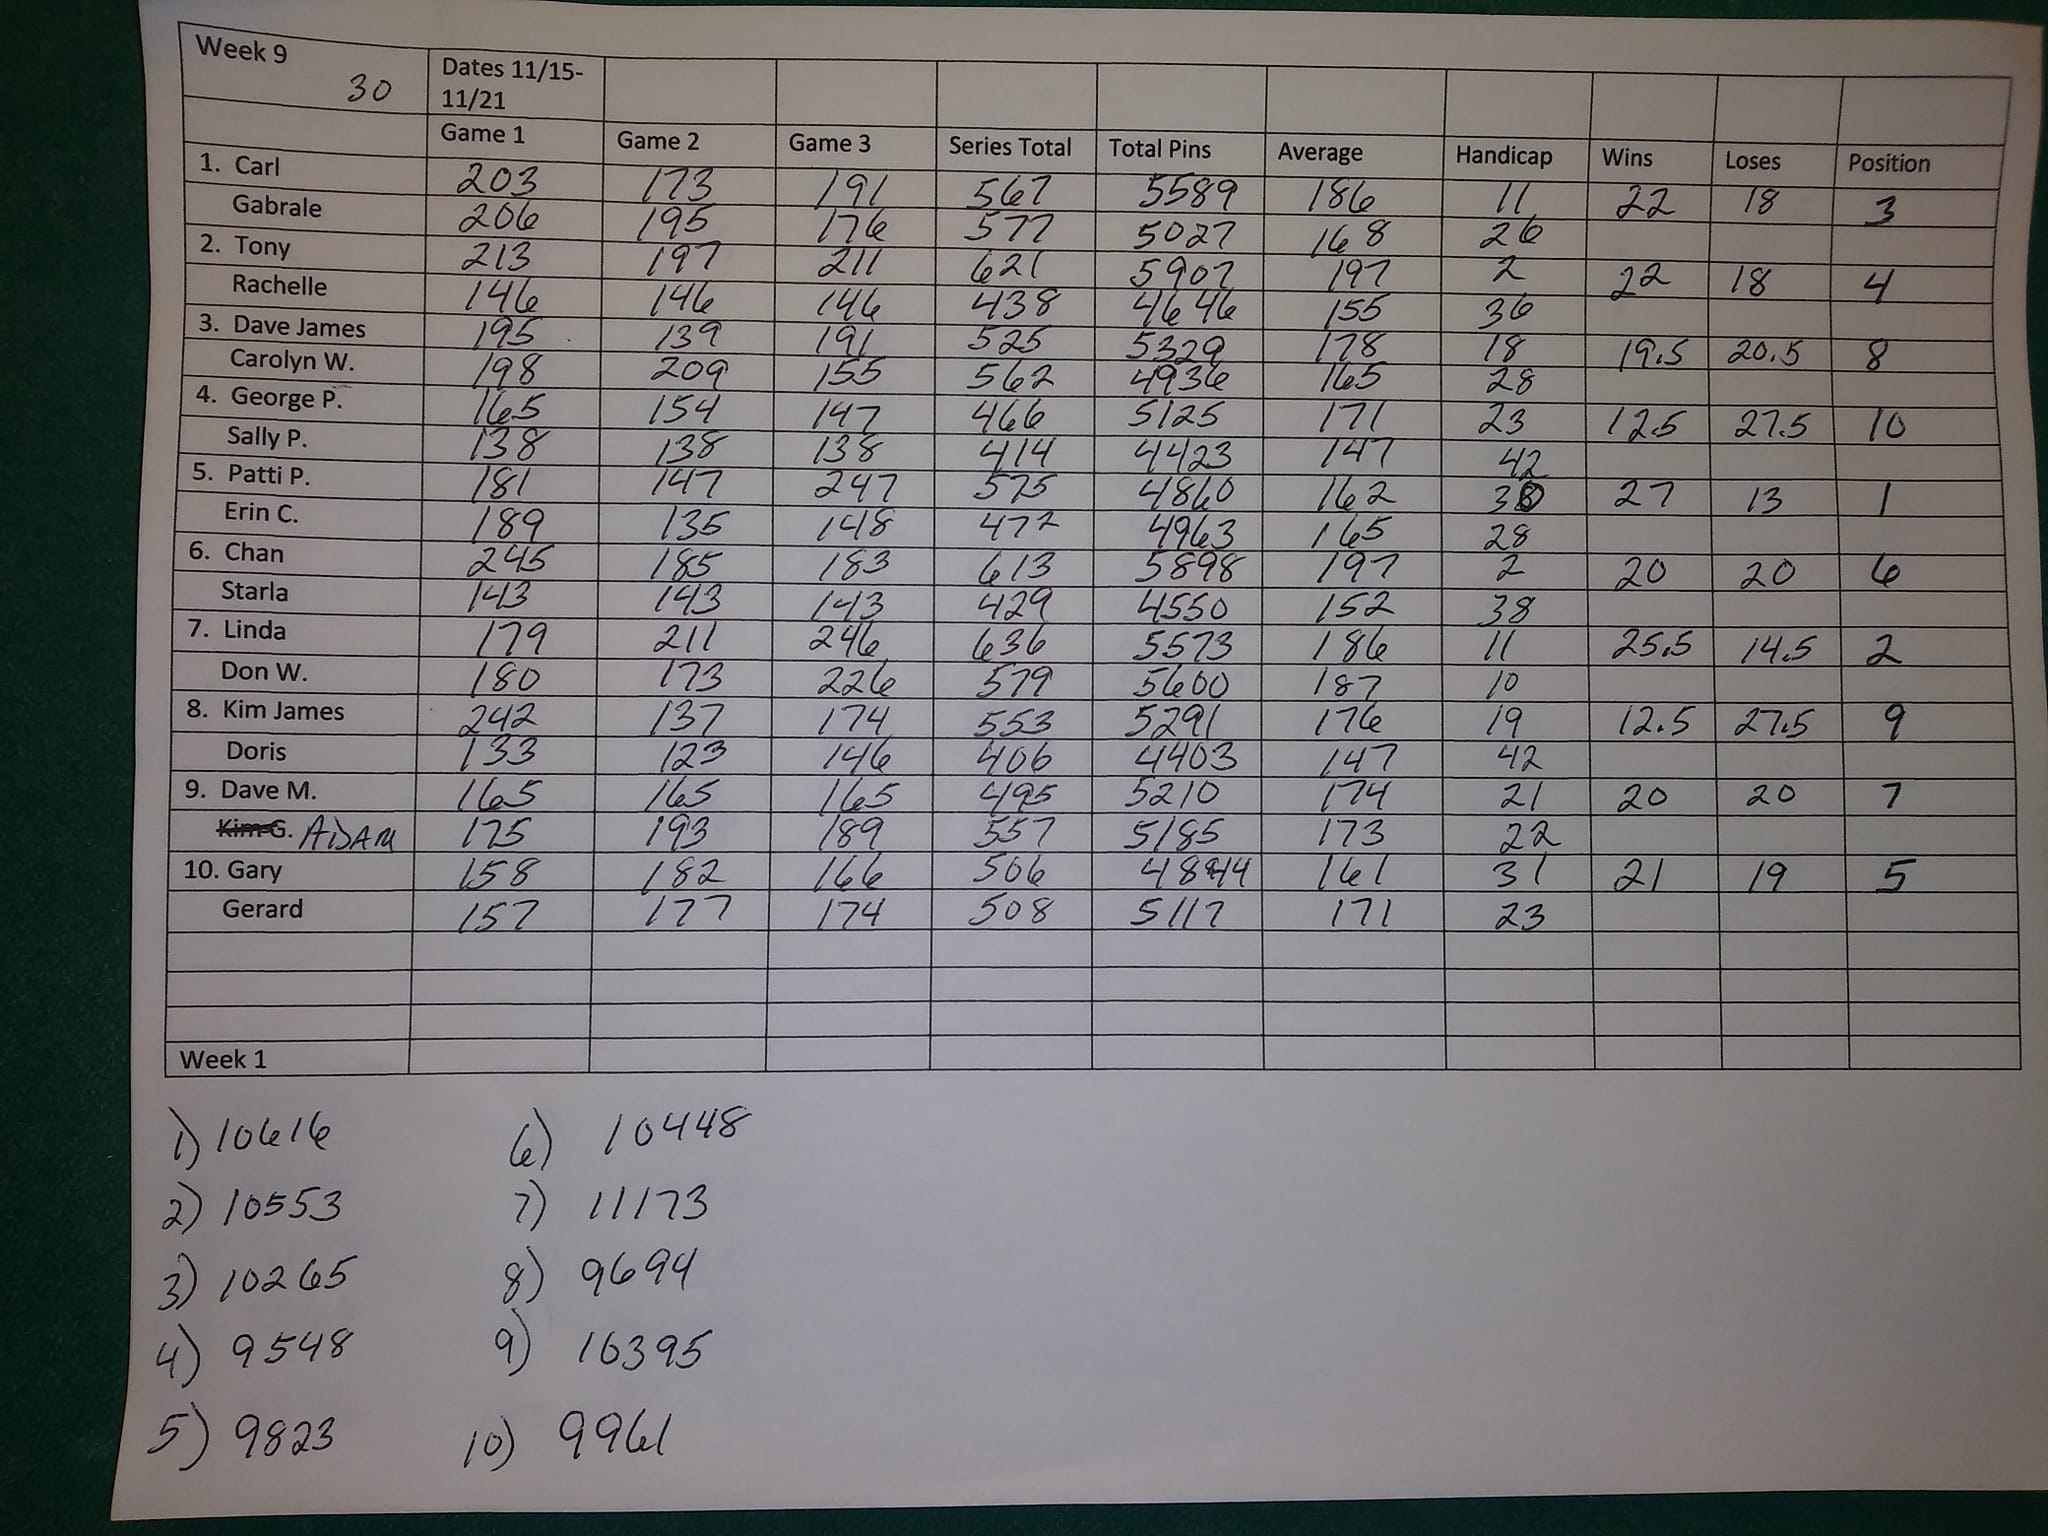 Week 9 30 Dates 11/15-11/21
Game 1 Game 2 Game 3 Series Total Total Pins Average Handicap Wins Loses Position
1. Carl 203 173 191 567 5589 186 11 22 18 3
Gabrale 206 195 176 577 5027 168 26
2. Tony 213 197 211 621 5907 197 2 22 18 4
Rachelle 146 146 146 438 4646 155 36
3. Dave James 195 139 191 525 5329 178 18 19.5 20.5 8
Carolyn W. 198 209 155 562 4936 165 28
4. George P. 165 154 147 466 5125 171 23 12.5 27.5 10
Sally P. 138 138 138 414 4423 147 42
5. Patti P. 181 147 247 575 4860 162 30 27 13 1
Erin C. 189 135 148 472 4963 165 28
6. Chan 245 185 183 613 5898 197 2 20 20 6
Starla 143 143 143 429 4550 152 38
7. Linda 179 211 246 636 5573 186 11 25.5 14.5 2
Don W. 180 173 226 579 5600 187 10
8. Kim James 242 137 174 553 5291 176 19 12.5 27.5 9
Doris 133 123 146 406 4403 147 42
9. Dave M. 165 165 165 495 5210 174 21 20 20 7
Kim G. ADAM 175 193 189 557 5185 173 22
10. Gary 158 182 166 506 4844 161 31 21 19 5
Gerard 157 177 174 508 5117 171 23
Week 1
1) 10616 6) 10448
2) 10553 7) 11173
3) 10265 8) 9694
4) 9548 9) 10395
5) 9823 10) 9961